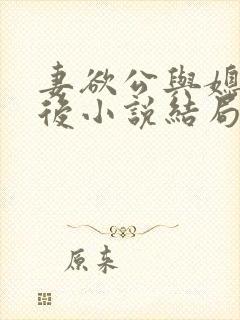 妻欲公與媳
後小說結局
原来